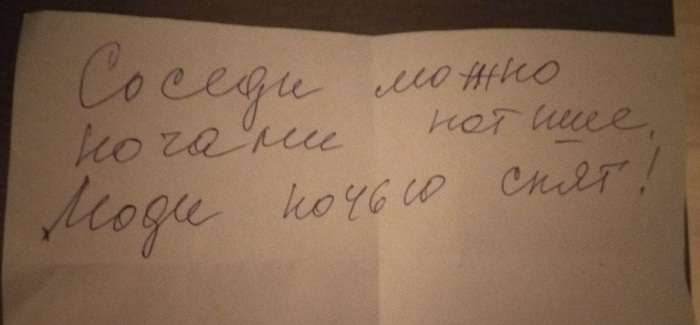 Соседи можно
ночами потише.
Люди ночью спят!